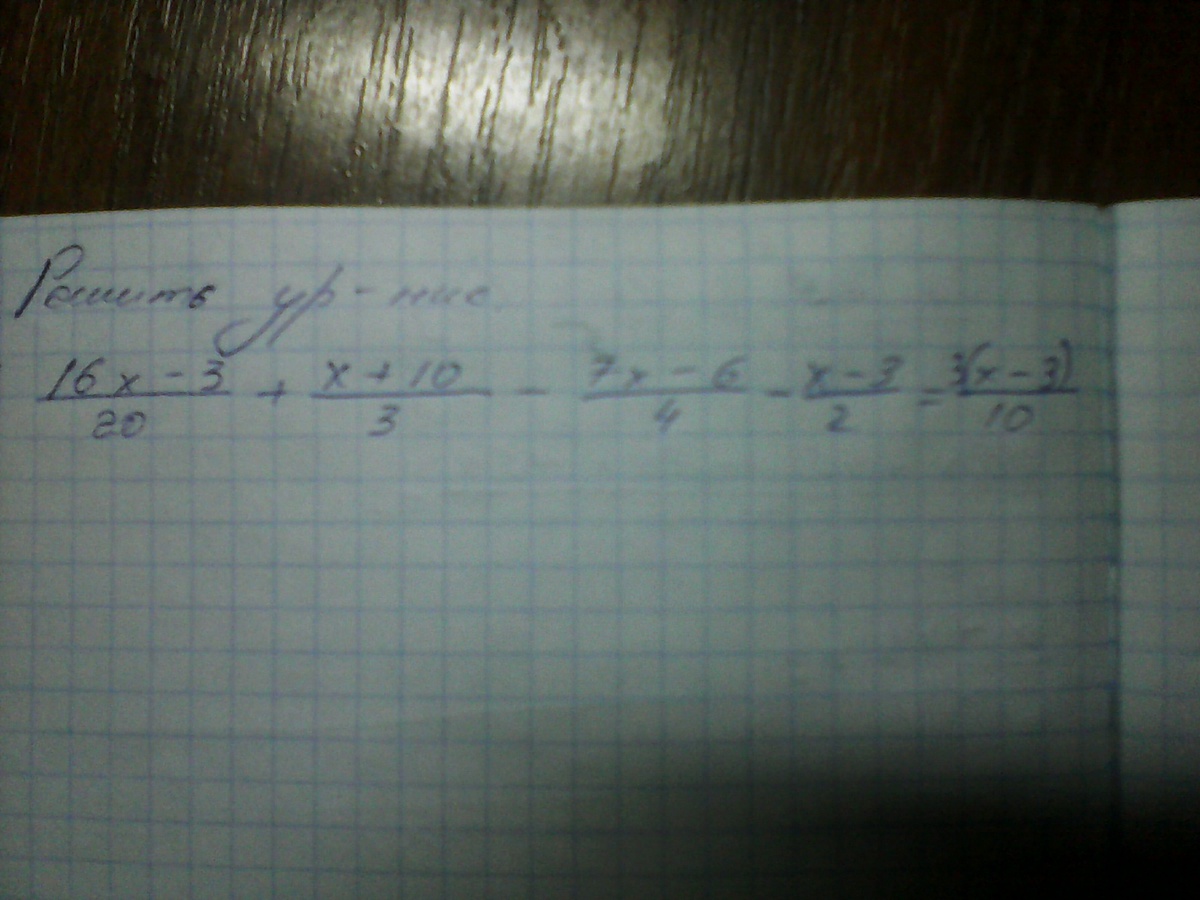 Решить ур-ние
(16x-3)/20 + (x+10)/3 - (7x-6)/4 - (x-3)/2 = 3(x-3)/10